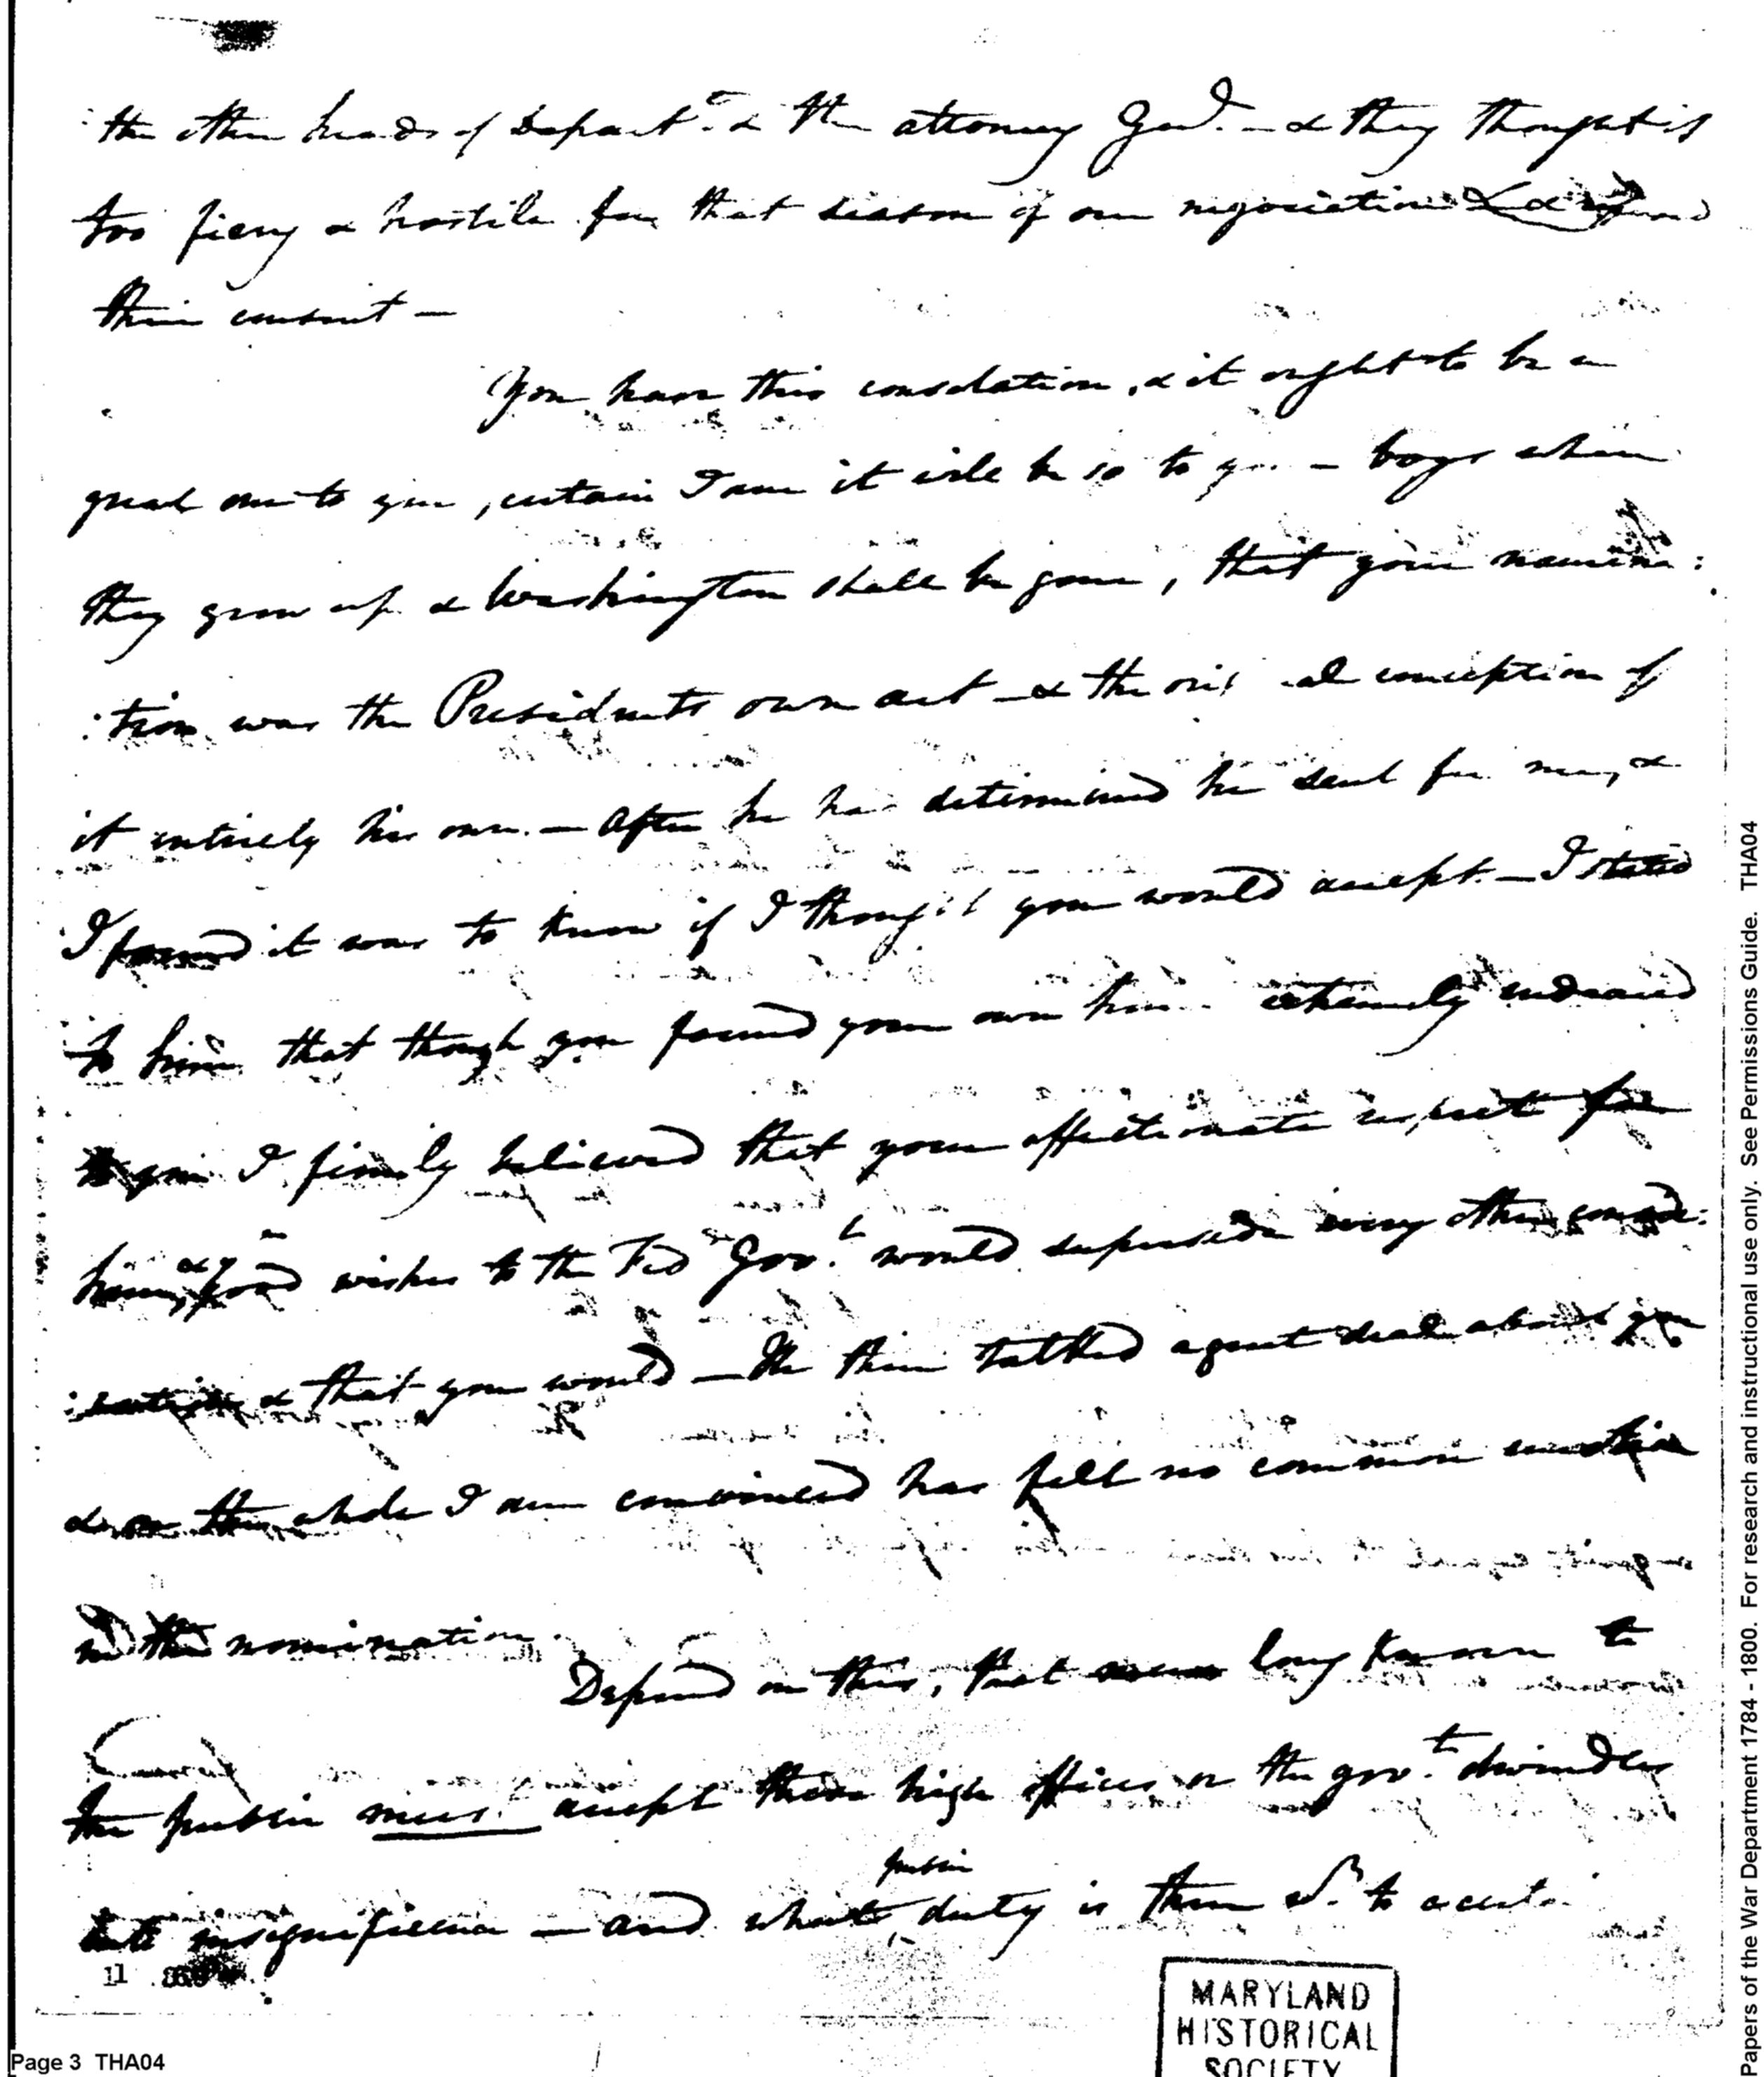 the other heads of Depart.ts & the attorney Genl. — & they thought it
too fiery & hostile for that season of our negociation &
their consent —
You have this consolation, & it ought to be a
great one to you, certain I am it will be so to your boys when
they grow up & Washington shall be gone, that your nomina:
:tion was the Presidents own act — & the original conception of
it entirely his own. — After he had determined he sent for me, &
I found it was to know if I thought you would accept. — I stated
to him that though you found your own home extremely endeared
to you I firmly believed that your affectionate respect for
him, & good wishes to the Fed Govt. would supersede every other conside:
:ration & that you would — He then talked a great deal about you
& on the whole I am convinced has felt no common
in the nomination.
Depend on this, that men long known to
the public must accept these high offices or the govt. dwindles
into insignificance — and what public duty is there Sr. to
11
MARYLAND
HISTORICAL
SOCIETY
Page 3 THA04
Papers of the War Department 1784 - 1800. For research and instructional use only. See Permissions Guide. THA04